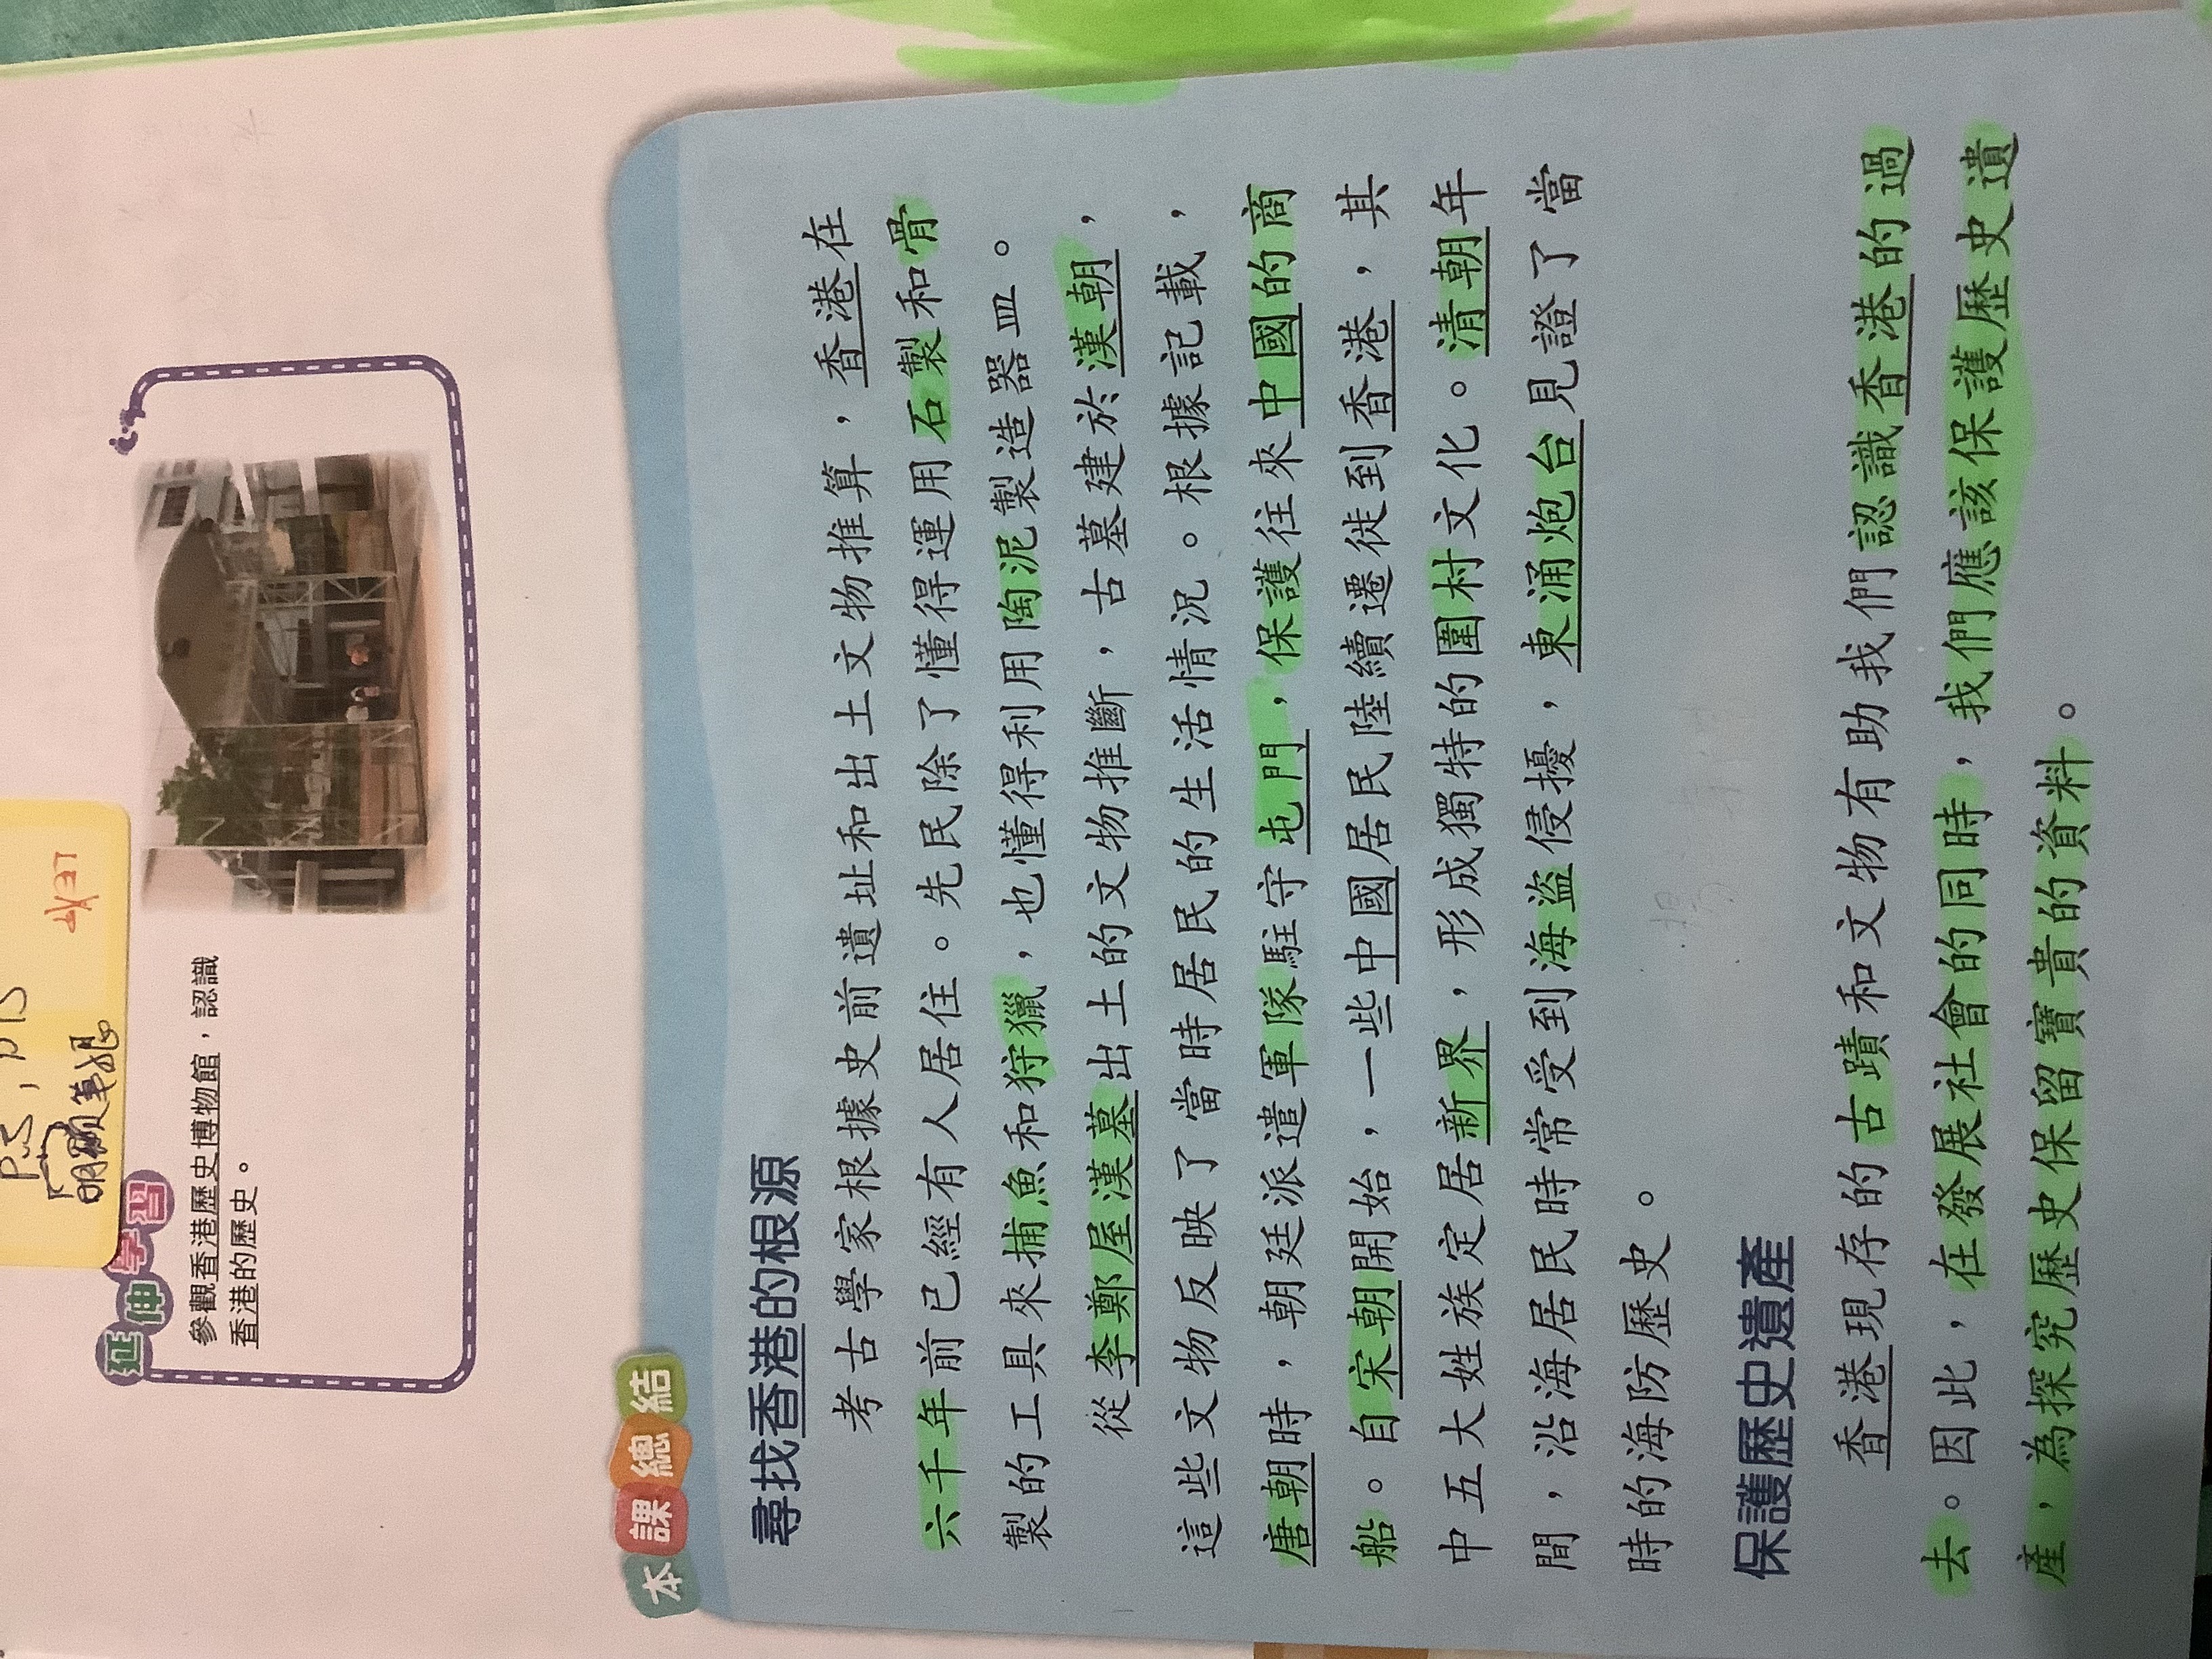 延伸學習
參觀香港歷史博物館，認識
香港的歷史。
本課總結
尋找香港的根源
考古學家根據史前遺址和出土文物推算，香港在
六千年前已經有人居住。先民除了懂得運用石製和骨
製的工具來捕魚和狩獵，也懂得利用陶泥製造器皿。
從李鄭屋漢墓出土的文物推斷，古墓建於漢朝，
這些文物反映了當時居民的生活情況。根據記載，
唐朝時，朝廷派遣軍隊駐守屯門，保護往來中國的商
船。自宋朝開始，一些中國居民陸續遷徙到香港，其
中五大姓族定居新界，形成獨特的圍村文化。清朝年
間，沿海居民時常受到海盜侵擾，東涌炮台見證了當
時的海防歷史。
保護歷史遺產
香港現存的古蹟和文物有助我們認識香港的過
去。因此，在發展社會的同時，我們應該保護歷史遺
產，為探究歷史保留寶貴的資料。